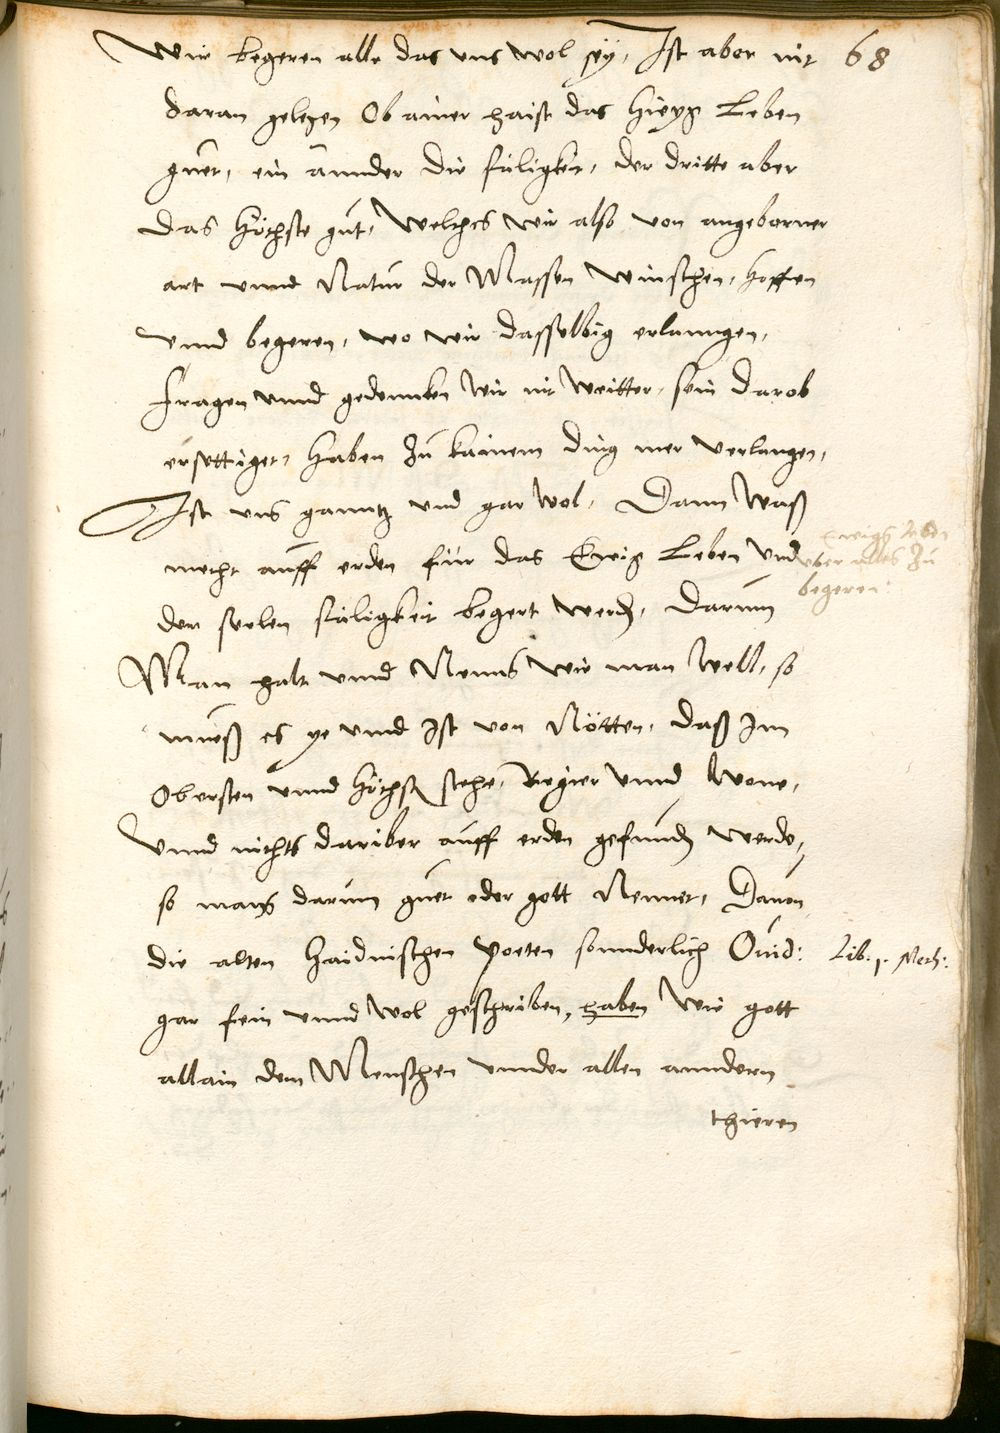 Wir begeren alle das uns wol sey, Ist aber nit 68
daran gelegen Ob ainer haist das Hieyg Leben
guet, ein annder die säligkeit, der dritte aber
das Höchste gut, Welches wir also von angeborner
art unnd Natur der Massen winschen, hoffen
unnd begeren, wo wir dasselbig erlanngen,
fragen unnd gedenncken wir nit weitter, sein darob
ersettiget, haben zu kainem ding mer verlangen,
Ist uns ganntz und gar wol, Dann waß
mecht auff erden für das Ewig Leben und
der seelen säligkeit begert werden, Darum
Ewigs leben
uber alles zu
begeren:
Man halt unnd Nenns wie man well, so
mueß es ye unnd Ist von Nötten, daß Im
Obersten unnd Höchst stehe, Regier unnd Wone,
Unnd nichts dariber auff erden gefunden werde,
so mans darum guet oder gott Nennet, Davon
die alten Haidnischen Poeten sonnderlich Ovid: Lib. 1. Meth:
gar fein unnd wol geschriben, haben wie gott
allain dem Menschen unnder allen anndern
thieren